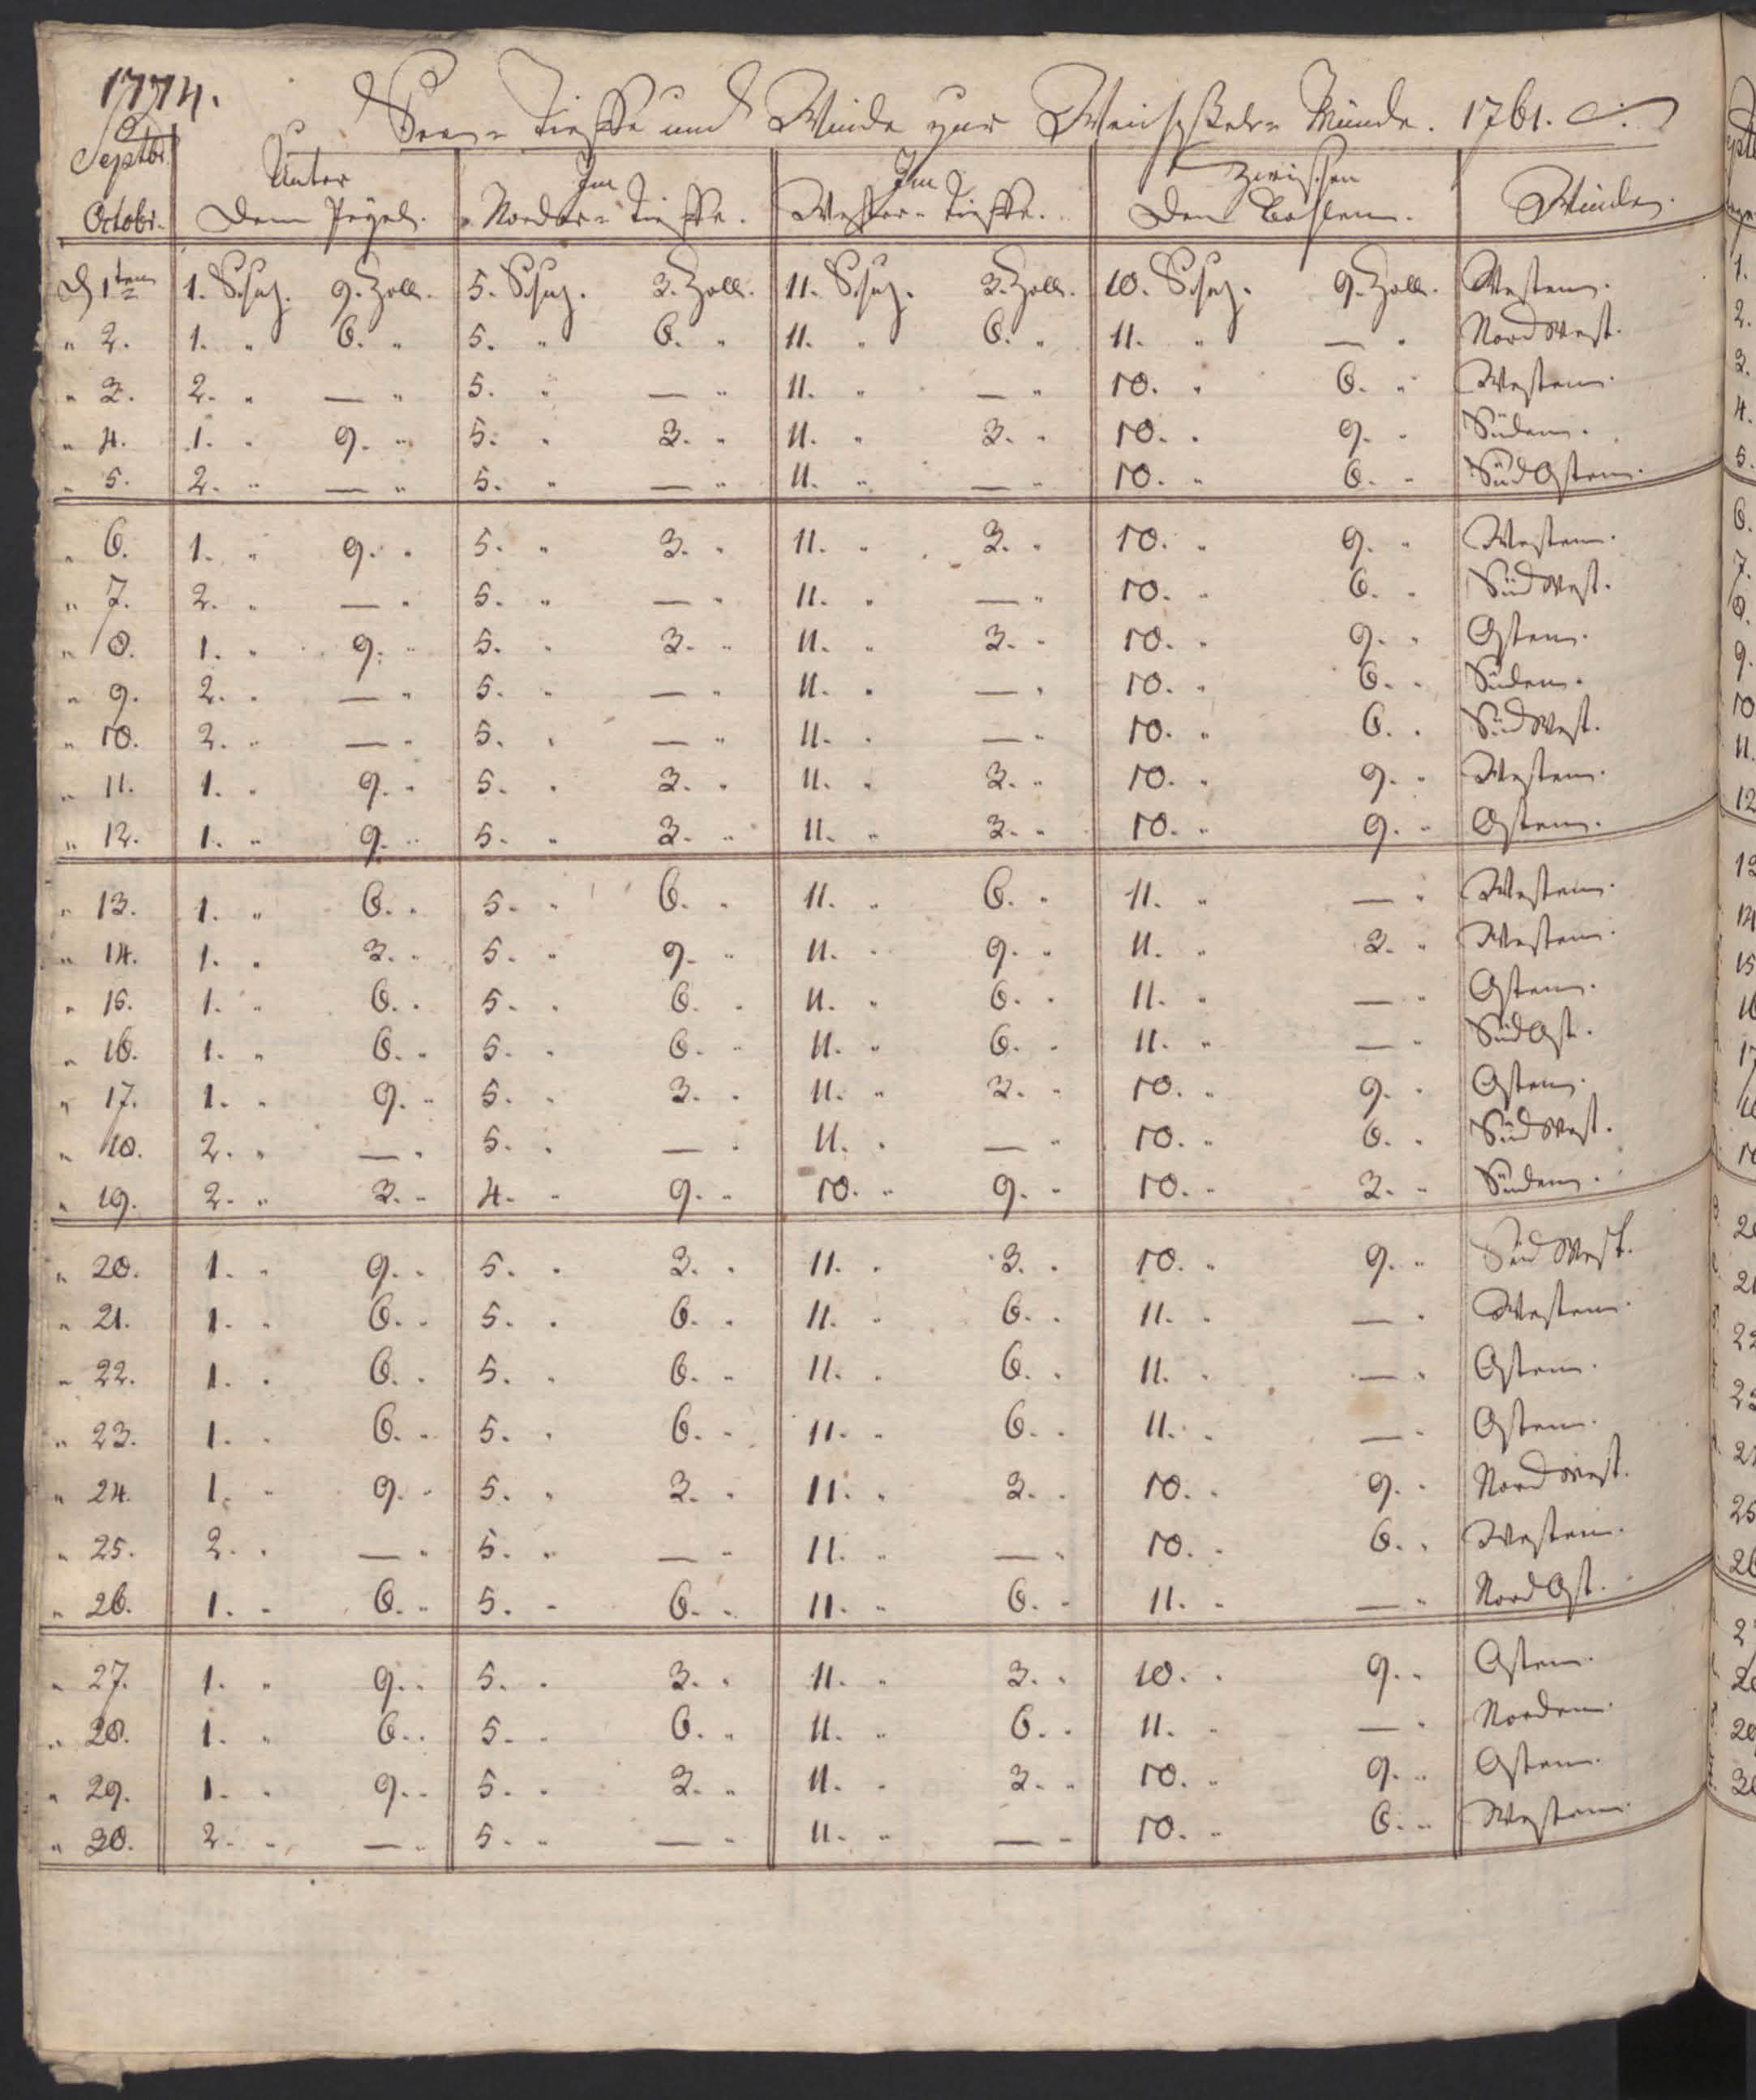 1774.
See- Tieffe und Winde zur Weichsel- Münde. 1761.
Septbr.
Octobr.
Unter Dem Pegel. | Im Norder- Tieffe. | Im Wester- Tieffe. | Zwischen Den Bohlen. | Winde.
D 1ten 1. Schuh. 9. Zoll. 5. Schuh. 3. Zoll. 11. Schuh. 3. Zoll. 10. Schuh. 9. Zoll. Westen.
" 2. 1. " 6. " 5. " 6. " 11. " 6. " 11. " — " NordWest.
" 3. 2. " — " 5. " — " 11. " — " 10. " 6. " Westen.
" 4. 1. " 9. " 5. " 3. " 11. " 3. " 10. " 9. " Süden.
" 5. 2. " — " 5. " — " 11. " — " 10. " 6. " SüdOsten.
" 6. 1. " 9. " 5. " 3. " 11. " 3. " 10. " 9. " Westen.
" 7. 2. " — " 5. " — " 11. " — " 10. " 6. " SüdWest.
" 8. 1. " 9. " 5. " 3. " 11. " 3. " 10. " 9. " Osten.
" 9. 2. " — " 5. " — " 11. " — " 10. " 6. " Süden.
" 10. 2. " — " 5. " — " 11. " — " 10. " 6. " SüdWest.
" 11. 1. " 9. " 5. " 3. " 11. " 3. " 10. " 9. " Westen.
" 12. 1. " 9. " 5. " 3. " 11. " 3. " 10. " 9. " Osten.
" 13. 1. " 6. " 5. " 6. " 11. " 6. " 11. " — " Westen.
" 14. 1. " 3. " 5. " 9. " 11. " 9. " 11. " 3. " Westen.
" 15. 1. " 6. " 5. " 6. " 11. " 6. " 11. " — " Osten.
" 16. 1. " 6. " 5. " 6. " 11. " 6. " 11. " — " SüdOst.
" 17. 1. " 9. " 5. " 3. " 11. " 3. " 10. " 9. " Osten.
" 18. 2. " — " 5. " — " 11. " — " 10. " 6. " SüdWest.
" 19. 2. " 3. " 4. " 9. " 10. " 9. " 10. " 3. " Süden.
" 20. 1. " 9. " 5. " 3. " 11. " 3. " 10. " 9. " SüdWest.
" 21. 1. " 6. " 5. " 6. " 11. " 6. " 11. " — " Westen.
" 22. 1. " 6. " 5. " 6. " 11. " 6. " 11. " — " Osten.
" 23. 1. " 6. " 5. " 6. " 11. " 6. " 11. " — " Osten.
" 24. 1. " 9. " 5. " 3. " 11. " 3. " 10. " 9. " NordWest.
" 25. 2. " — " 5. " — " 11. " — " 10. " 6. " Westen.
" 26. 1. " 6. " 5. " 6. " 11. " 6. " 11. " — " NordOst.
" 27. 1. " 9. " 5. " 3. " 11. " 3. " 10. " 9. " Osten.
" 28. 1. " 6. " 5. " 6. " 11. " 6. " 11. " — " Norden.
" 29. 1. " 9. " 5. " 3. " 11. " 3. " 10. " 9. " Osten.
" 30. 2. " — " 5. " — " 11. " — " 10. " 6. " Westen.